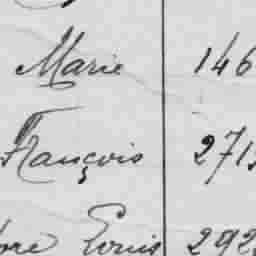 Marie 146
François 271
Louis 292